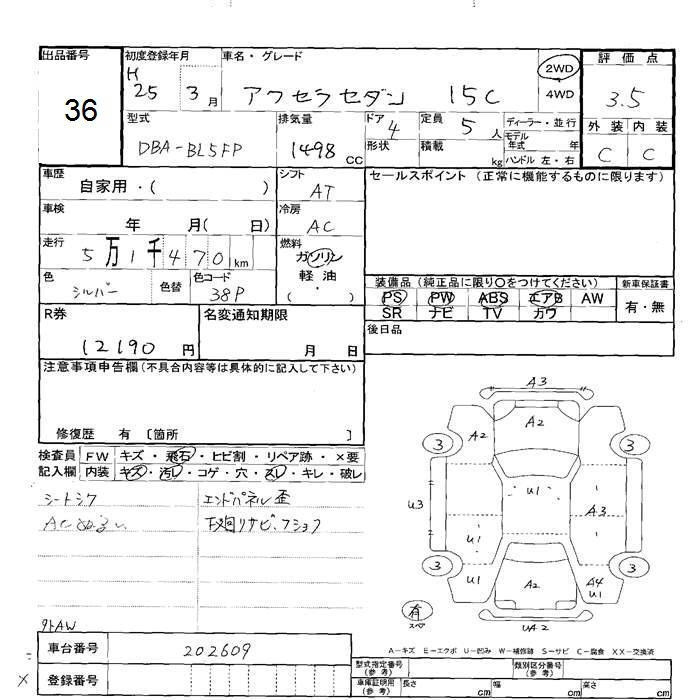 出品番号
36
初度登録年月
H 25 3月
車名・グレード
アクセラセダン 15C
2WD
4WD
評価点
3.5
外装 内装
C C
型式
DBA-BL5FP
排気量
1498 CC
ドア
4
形状
定員
5 人
積載
kg
ディーラー・並行
モデル年式 年
ハンドル 左・右
車歴
自家用・( )
シフト
AT
セールスポイント (正常に機能するものに限ります)
車検
年 月( 日)
冷房
AC
走行
5万1千470 km
燃料
ガソリン
軽油・
( )
色
シルバー
色替
色コード
38P
装備品 (純正品に限り○をつけてください)
PS PW ABS エアB AW
SR ナビ TV カワ
新車保証書
有・無
後日品
R券
12190 円
名変通知期限
月 日
注意事項申告欄(不具合内容等は具体的に記入して下さい)
修復歴 有 〔箇所 〕
検査員記入欄
FW キズ・飛石・ヒビ割・リペア跡・×要
内装 キズ・汚レ・コゲ・穴・スレ・キレ・破レ
シートシワ
ACぬるい
エンドパネル歪
下廻リサビ、フショク
外AW
A3
A2 A2
3 3
U1
U3 A3
U1
3 3
U1 A2 A4 U1
有
スペア
UA2
A-キズ E-エクボ U-凹み W-補修跡 S-サビ C-腐食 XX-交換済
車台番号
202609
登録番号
型式指定番号(参考)
類別区分番号(参考)
車庫証明用(参考)
長さ cm 幅 cm 高さ cm